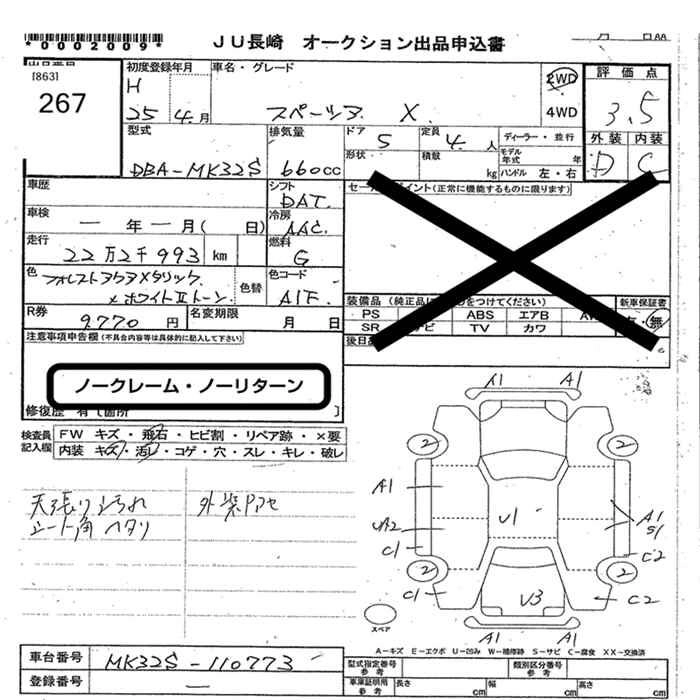 *0002009*
JU長崎 オークション出品申込書
出品番号
[863]
267
初度登録年月
H
25 4月
車名・グレード
スペーシア X
2WD
4WD
評価点
3.5
外装 内装
D C
型式
DBA-MK32S
排気量
660cc
ドア 5
形状
定員 4人
積載 kg
ディーラー・並行
モデル年式 年
ハンドル 左・右
車歴
シフト
DAT
セールスポイント(正常に機能するものに限ります)
車検
ー年ー月( 日)
冷房
AAC
走行
22万2千993 km
燃料
G
色
フォレストアクアメタリック
×ホワイトIIトーン
色替
色コード
A1F
装備品(純正品に○をつけてください)
新車保証書
有・無
PS ABS エアB AW
SR ナビ TV カワ
R券
9,770円
名変期限
月 日
後日品
注意事項申告欄(不具合内容等は具体的に記入して下さい)
ノークレーム・ノーリターン
修復歴 有[箇所 ]
検査員記入欄
FW キズ・飛石・ヒビ割・リペア跡・×要
内装 キズ・汚レ・コゲ・穴・スレ・キレ・破レ
天張り汚れ
シート角ヘタリ
外装アセ
A1 A1
2 2
A1
U1
A1
S1
C1
C2
2 2
C1
U3
C2
A1 A1
スペア
A-キズ E-エクボ U-凹み W-補修跡 S-サビ C-腐食 XX-交換済
車台番号
MK32S-110773
登録番号
ー
型式指定番号
参考
類別区分番号
参考
車庫証明用
参考
長さ cm
幅 cm
高さ cm